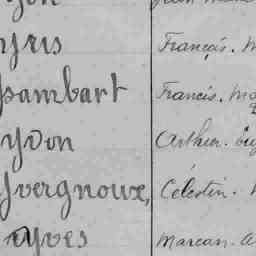 yris François. M
Psambart Francis. Ma
Yvon Arthur. Eug
Yvergnoux, Célestin.
Yves Marcan. A